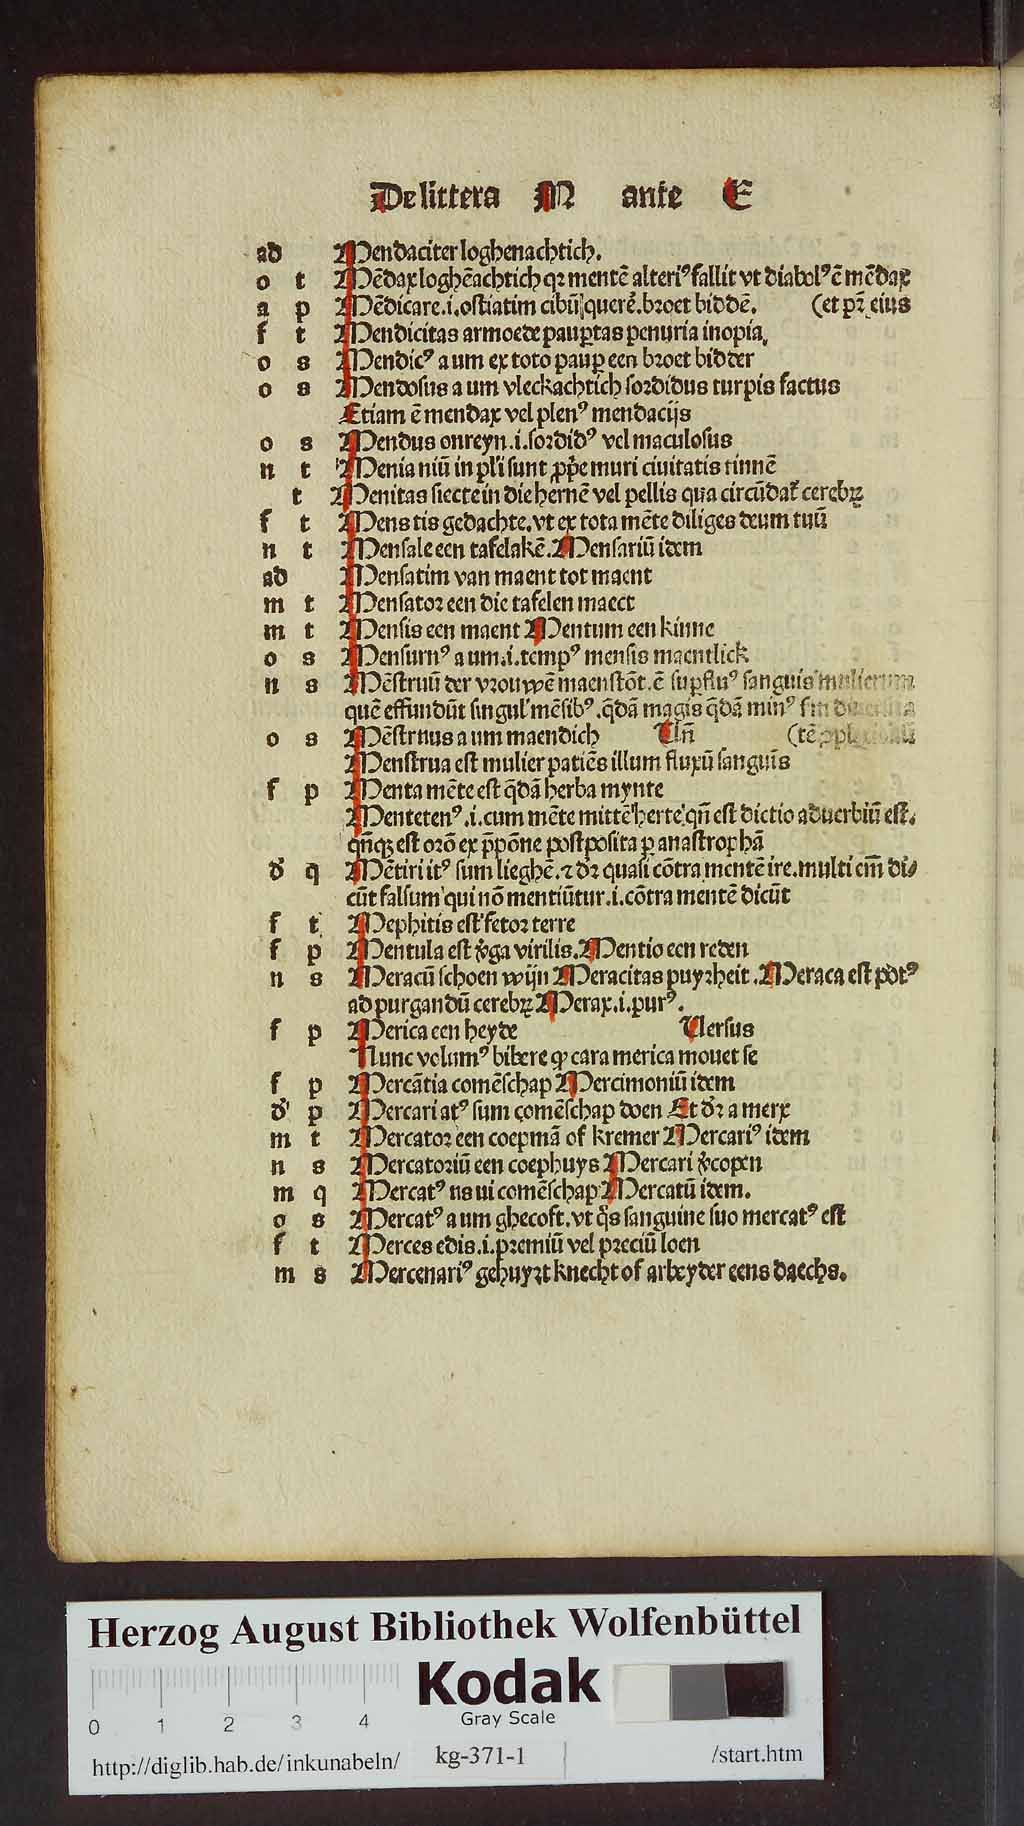 De littera M ante E
ad Mendaciter loghenachtich.
o t Mēdax loghēachtich qꝛ mentē alteriꝰ fallit vt diabolꝰ ē mēdax
a p Mēdicare .i. ostiatim cibū querē. broet biddē. (et pr̄ eius
f t Mendicitas armoede pauꝑtas penuria inopia.
o s Mendicꝰ a um ex toto pauꝑ een broet bidder
o s Mendosus a um vleckachtich sordidus turpis factus
Etiam ē mendax vel plenꝰ mendacijs
o s Mendus onreyn .i. sordidꝰ vel maculosus
n t Menia niū in pl'i sunt ꝓpꝛe muri ciuitatis tinnē
t Menitas siecte in die hernē vel pellis qua circūdat᷑ cerebꝝ
f t Mens tis gedachte. vt ex tota mēte diliges deum tuū
n t Mensale een tafelakē. Mensariū idem
ad Mensatim van maent tot maent
m t Mensator een die tafelen maect
m t Mensis een maent Mentum een kinne
o s Mensurnꝰ a um .i. tempꝰ mensis maentlick
n s Mēstruū der vrouwē maenstōt. ē suꝑfluꝰ sanguis mulierum
quē effundūt singul' mēsibꝰ. q̄dā magis q̄dā minꝰ
o s Mēstruus a um maendich Un̄ (tē
Menstrua est mulier patiēs illum fluxū sanguīs
f p Menta mēte est q̄dā herba mynte
Mentetenꝰ .i. cum mēte mittē herte qn̄ est dictio aduerbiū est.
qn̄qꝫ est orō ex p̄pōne postposita ꝑ anastrophā
d᷑ q Mētiri itꝰ sum lieghē. ⁊ dꝛ̄ quasi cōtra mentē ire. multi em̄ di⸗
cūt falsum qui nō mentiūtur .i. cōtra mentē dicūt
f t Mephitis est fetor terre
f p Mentula est v̄ga virilis. Mentio een reden
n s Meracū schoen wijn Meracitas puyrheit. Meraca est potꝰ
ad purgandū cerebꝝ Merax .i. purꝰ.
f p Merica een heyde Versus
Nunc volumꝰ bibere ꝙ cara merica mouet se
f p Mercātia comēschap Mercimoniū idem
d᷑ p Mercari atꝰ sum comēschap doen Et dꝛ̄ a merx
m t Mercator een coepmā of kremer Mercariꝰ idem
n s Mercatoriū een coephuys Mercari v̄copen
m q Mercatꝰ us ui comēschap Mercatū idem.
o s Mercatꝰ a um ghecoft. vt q̇s sanguine suo mercatꝰ est
f t Merces edis .i. premiū vel preciū loen
m s Mercenariꝰ gehuyrt knecht of arbeyder eens daechs.
Herzog August Bibliothek Wolfenbüttel
Kodak
Gray Scale
0 1 2 3 4
http://diglib.hab.de/inkunabeln/ kg-371-1 /start.htm